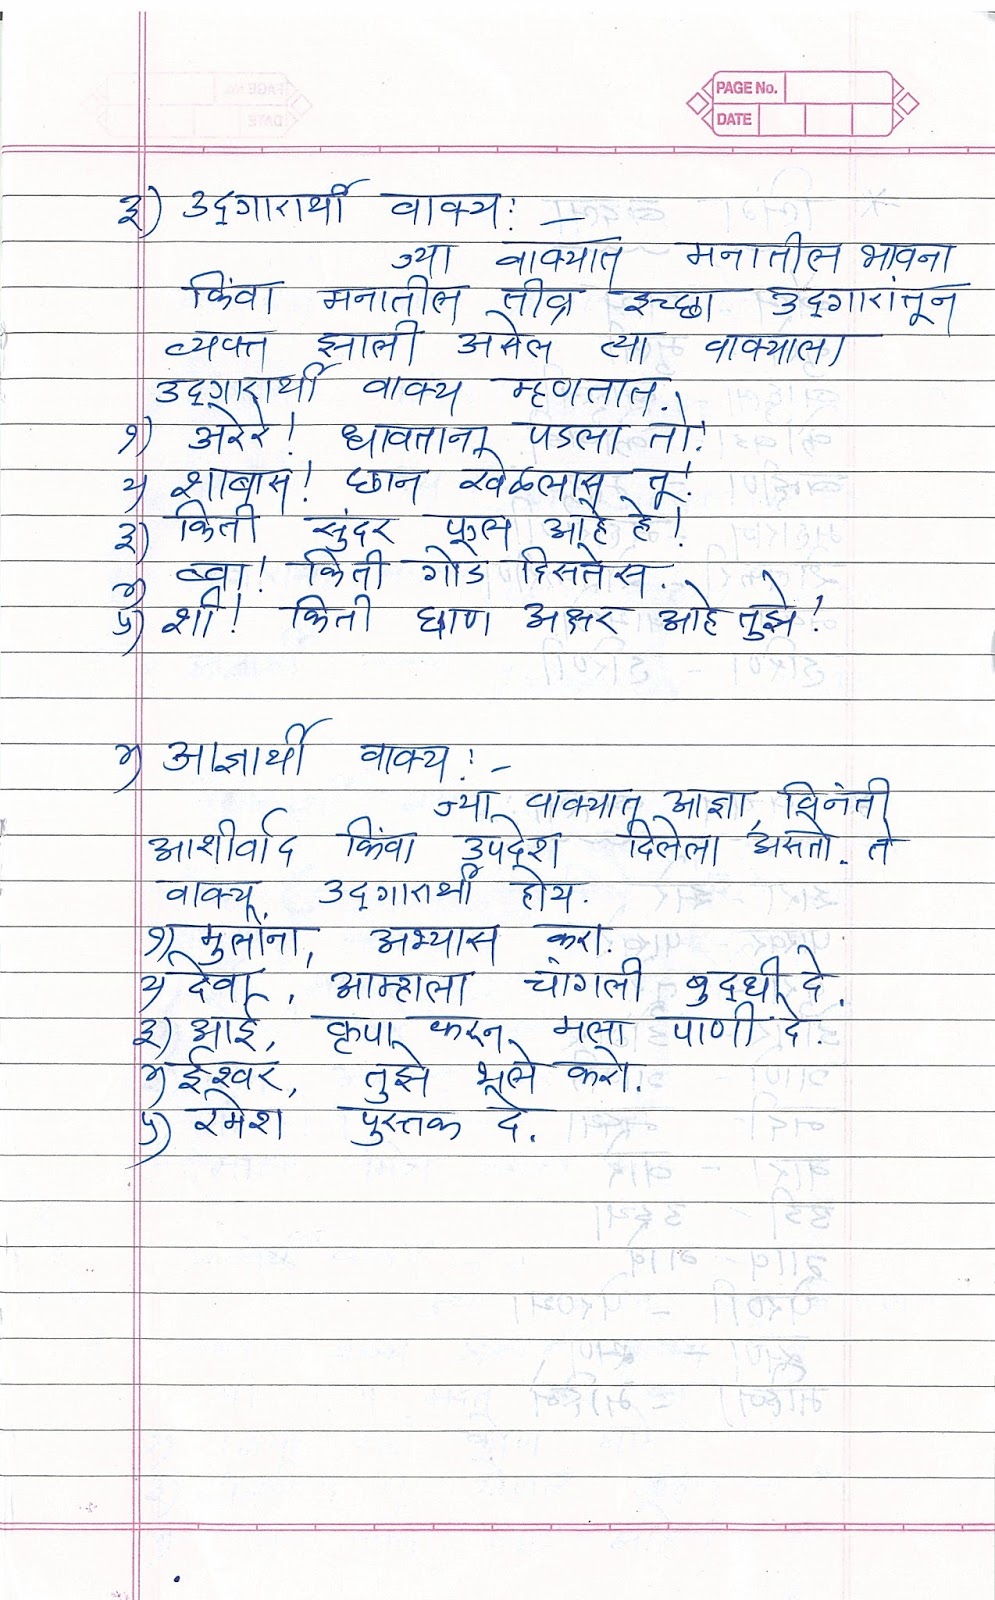 PAGE No.
DATE
३) उद्‌गारार्थी वाक्य: –
ज्या वाक्यात मनातील भावना
किंवा मनातील तीव्र इच्छा उद्‌गारांतून
व्यक्त झाली असेल त्या वाक्याला
उद्‌गारार्थी वाक्य म्हणतात.
१) अरेरे! धावताना पडला तो!
२) शाबास! छान खेळलास तू!
३) किती सुंदर फूल आहे हे!
४) व्वा! किती गोड दिसतेस.
५) शी! किती घाण अक्षर आहे तुझे!
४) आज्ञार्थी वाक्य: –
ज्या वाक्यात आज्ञा, विनंती
आशीर्वाद किंवा उपदेश दिलेला असतो. ते
वाक्य उद्‌गारार्थी होय.
१) मुलांना, अभ्यास करा.
२) देवा, आम्हाला चांगली बुद्‌धी दे.
३) आई, कृपा करून मला पाणी दे.
४) ईश्वर, तुझे भले करो.
५) रमेश पुस्तक दे.